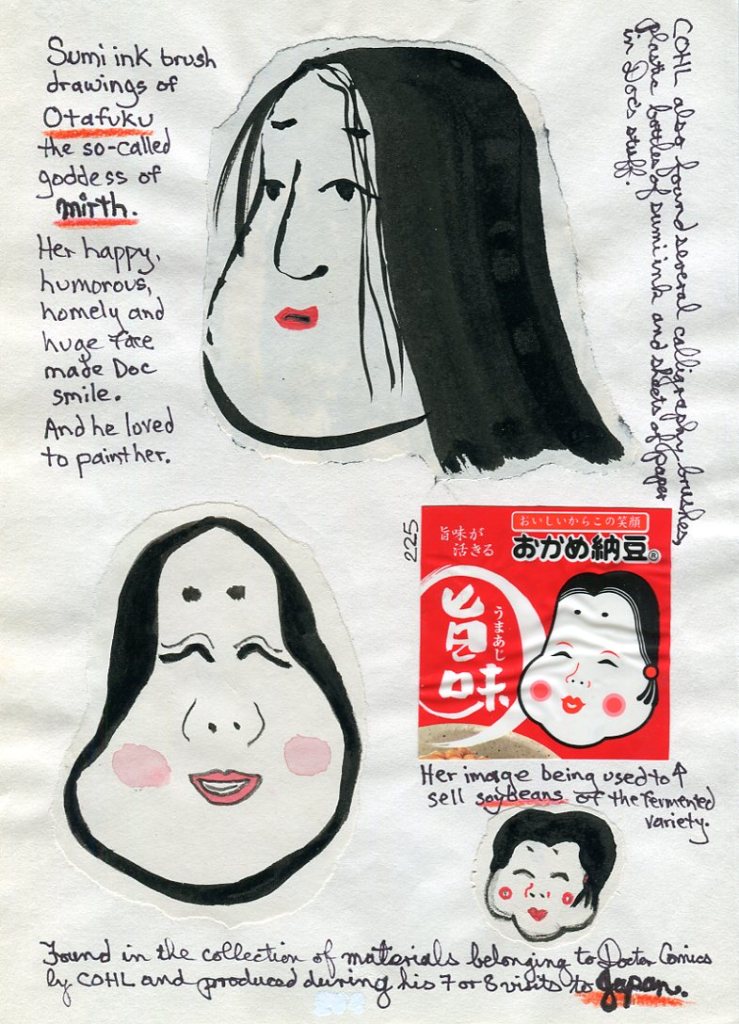 Sumi ink brush
drawings of
Otafuku
the so-called
goddess of
mirth.
Her happy,
humorous,
homely and
huge face
made Doc
smile.
And he loved
to paint her.
COHL also found several calligraphy brushes,
plastic bottles of sumi ink and sheets of paper
in Doc's stuff.
225
おいしいからこの笑顔
旨味が
活きる
おかめ納豆®
旨味
うまあじ
Her image being used to ↑
sell soybeans of the fermented
variety.
Found in the collection of materials belonging to Doctor Comics
by COHL and produced during his 7 or 8 visits to Japan.